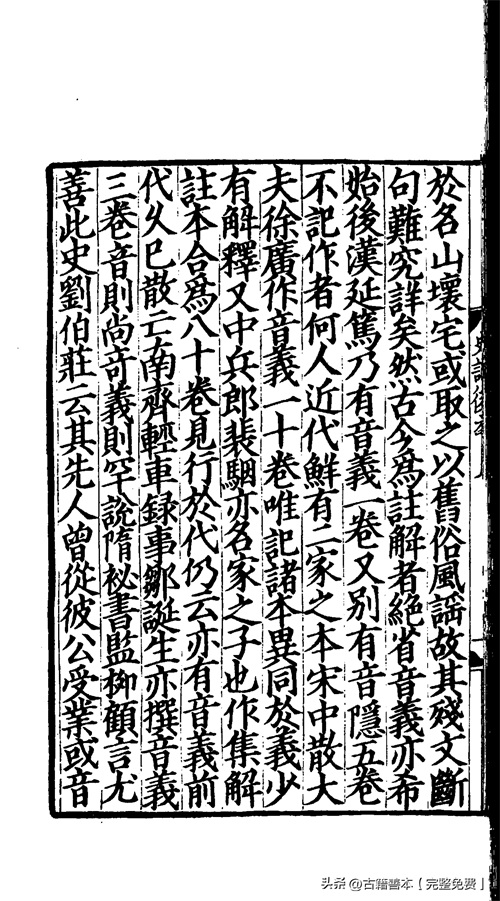 於名山壞宅或取之以舊俗風謡故其殘文斷
句難究詳矣然古今爲註解者絶省音義亦希
始後漢延篤乃有音義一卷又别有音隱五卷
不記作者何人近代鮮有二家之本宋中散大
夫徐廣作音義一十卷唯記諸本異同於義少
有解釋又中兵郎裴駰亦名家之子也作集解
註本合爲八十卷見行於代仍云亦有音義前
代久已散亡南齊輕車録事鄒誕生亦撰音義
三卷音則尚竒義則罕說隋祕書監柳顧言尤
善此史劉伯莊云其先人曾從彼公受業或音
头条 @古籍善本【完整免费】